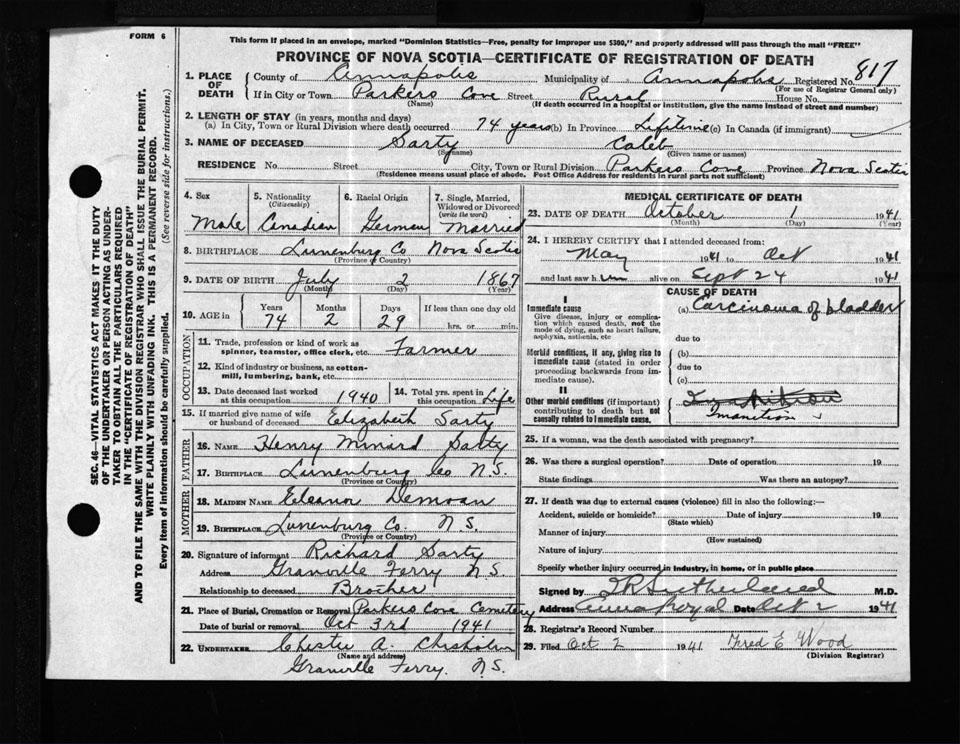 FORM 6
This form if placed in an envelope, marked "Dominion Statistics—Free, penalty for improper use $300," and properly addressed will pass through the mail "FREE"
PROVINCE OF NOVA SCOTIA—CERTIFICATE OF REGISTRATION OF DEATH
1. PLACE OF DEATH
County of Annapolis Municipality of Annapolis Registered No. 817
(For use of Registrar General only)
If in City or Town Parkers Cove Street Rural House No.
(Name) (If death occurred in a hospital or institution, give the name instead of street and number)
2. LENGTH OF STAY (in years, months and days)
(a) In City, Town or Rural Division where death occurred 74 years (b) In Province Lifetime (c) In Canada (if immigrant)
3. NAME OF DECEASED Sarty Caleb
(Surname) (Given name or names)
RESIDENCE No. Street City, Town or Rural Division Parkers Cove Province Nova Scotia
(Residence means usual place of abode. Post Office Address for residents in rural parts not sufficient)
4. Sex
Male
5. Nationality
(Citizenship)
Canadian
6. Racial Origin
German
7. Single, Married, Widowed or Divorced
(write the word)
Married
8. BIRTHPLACE Lunenburg Co Nova Scotia
(Province or Country)
9. DATE OF BIRTH July 2 1867
(Month) (Day) (Year)
10. AGE in
Years Months Days If less than one day old
74 2 29 hrs. or min.
OCCUPATION
11. Trade, profession or kind of work as
spinner, teamster, office clerk, etc. Farmer
12. Kind of industry or business, as cotton-
mill, lumbering, bank, etc.
13. Date deceased last worked at this occupation 1940
14. Total yrs. spent in this occupation Life
15. If married give name of wife or husband of deceased Elizabeth Sarty
FATHER
16. NAME Henry Minard Sarty
17. BIRTHPLACE Lunenburg Co N.S.
(Province or Country)
MOTHER
18. MAIDEN NAME Eleanor Demoan
19. BIRTHPLACE Lunenburg Co. N.S.
(Province or Country)
20. Signature of informant Richard Sarty
Address Granville Ferry N.S.
Relationship to deceased Brother
21. Place of Burial, Cremation or Removal Parkers Cove Cemetery
Date of burial or removal Oct 3rd 1941
22. UNDERTAKER Chester A. Chisholm
(Name and address)
Granville Ferry N.S.
MEDICAL CERTIFICATE OF DEATH
23. DATE OF DEATH October 1 1941
(Month) (Day) (Year)
24. I HEREBY CERTIFY that I attended deceased from:
May 1941 to Oct 1941
and last saw him alive on Sept 24 1941
CAUSE OF DEATH
I
Immediate cause
Give disease, injury or complication which caused death, not the mode of dying, such as heart failure, asphyxia, asthenia, etc
(a) Carcinoma of bladder
due to
Morbid conditions, if any, giving rise to immediate cause (stated in order proceeding backwards from immediate cause).
(b)
due to
(c)
II
Other morbid conditions (if important) contributing to death but not causally related to immediate cause.
Inanition
25. If a woman, was the death associated with pregnancy?
26. Was there a surgical operation? Date of operation 19
State findings Was there an autopsy?
27. If death was due to external causes (violence) fill in also the following:—
Accident, suicide or homicide? Date of injury 19
(State which)
Manner of injury
(How sustained)
Nature of injury
Specify whether injury occurred in industry, in home, or in public place
Signed by Sutherland M.D.
Address Anna Royal Date Oct 2 1941
28. Registrar's Record Number
29. Filed Oct 2 1941 Fred E Wood
(Division Registrar)
SEC. 46—VITAL STATISTICS ACT MAKES IT THE DUTY
OF THE UNDERTAKER OR PERSON ACTING AS UNDER-
TAKER TO OBTAIN ALL THE PARTICULARS REQUIRED
IN THE "CERTIFICATE OF REGISTRATION OF DEATH"
AND TO FILE THE SAME WITH THE DIVISION REGISTRAR WHO SHALL ISSUE THE BURIAL PERMIT.
WRITE PLAINLY WITH UNFADING INK. THIS IS A PERMANENT RECORD.
Every item of information should be carefully supplied. (See reverse side for instructions.)